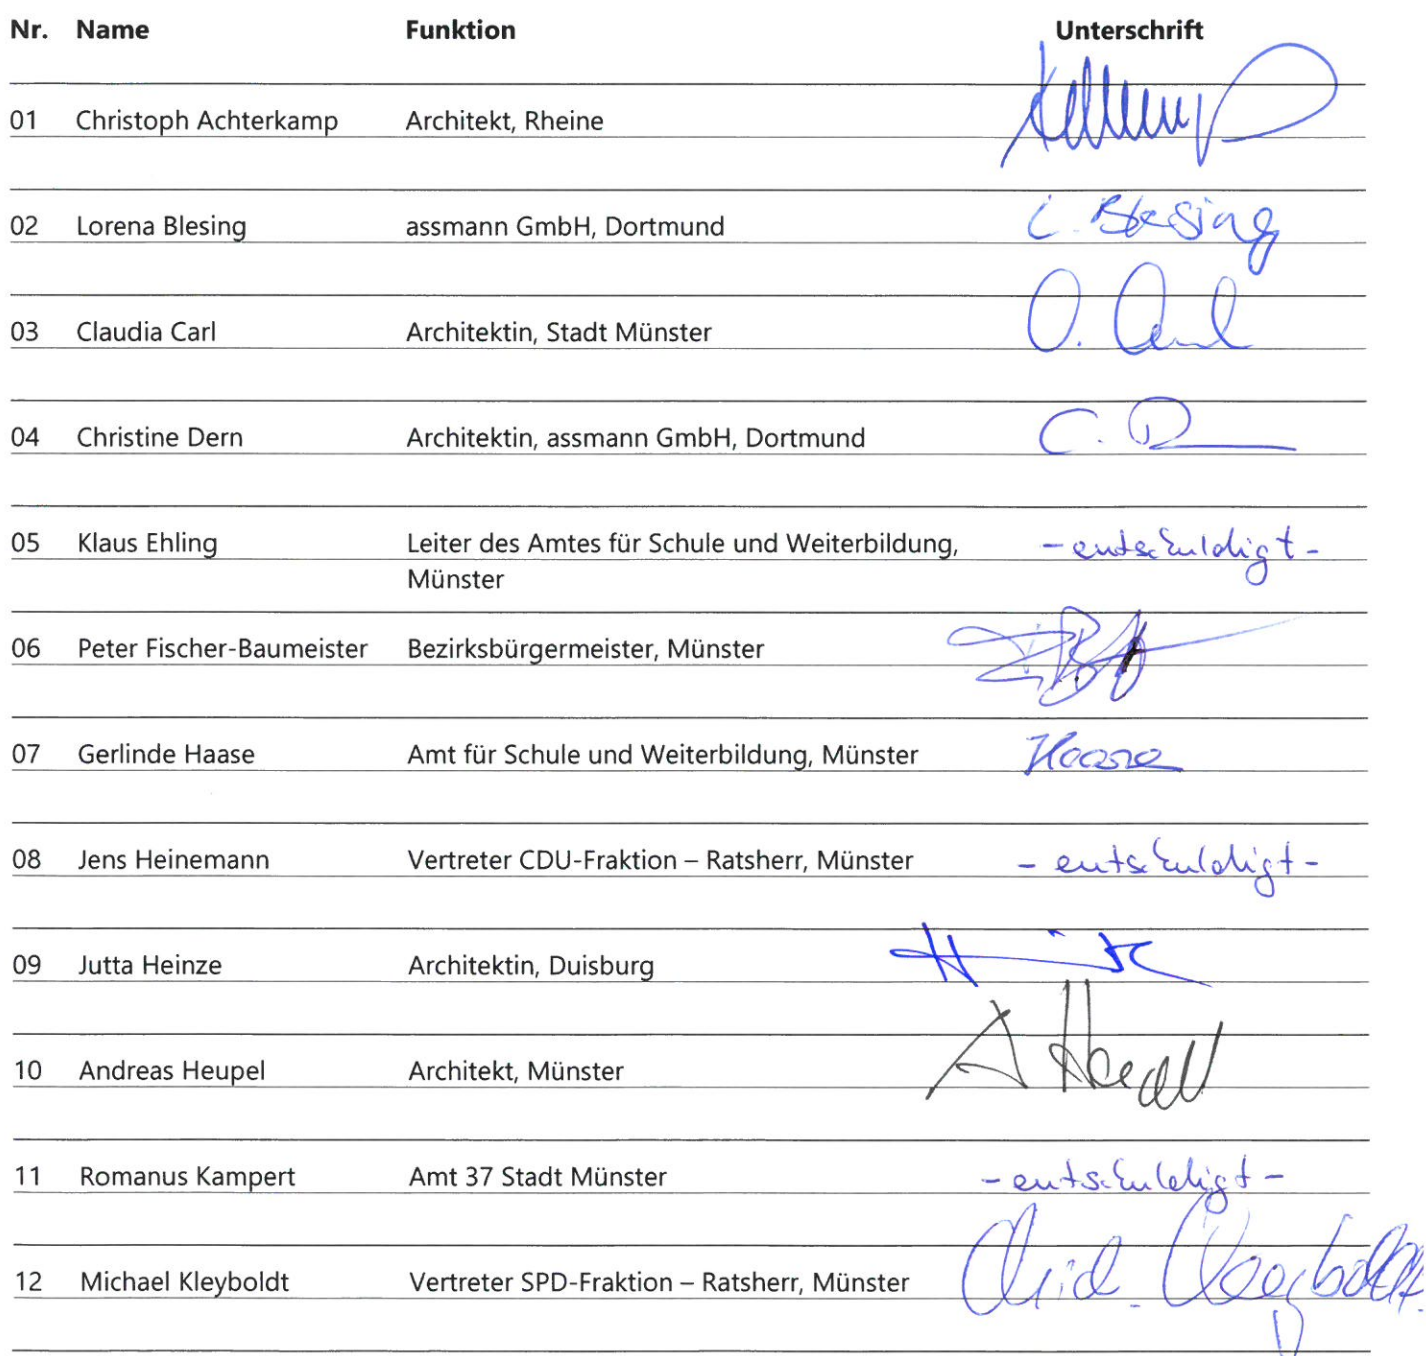 Nr. Name Funktion Unterschrift
01 Christoph Achterkamp Architekt, Rheine
02 Lorena Blesing assmann GmbH, Dortmund L. Blesing
03 Claudia Carl Architektin, Stadt Münster
04 Christine Dern Architektin, assmann GmbH, Dortmund
05 Klaus Ehling Leiter des Amtes für Schule und Weiterbildung, - entschuldigt -
Münster
06 Peter Fischer-Baumeister Bezirksbürgermeister, Münster
07 Gerlinde Haase Amt für Schule und Weiterbildung, Münster Haase
08 Jens Heinemann Vertreter CDU-Fraktion – Ratsherr, Münster - entschuldigt -
09 Jutta Heinze Architektin, Duisburg
10 Andreas Heupel Architekt, Münster
11 Romanus Kampert Amt 37 Stadt Münster - entschuldigt -
12 Michael Kleyboldt Vertreter SPD-Fraktion – Ratsherr, Münster